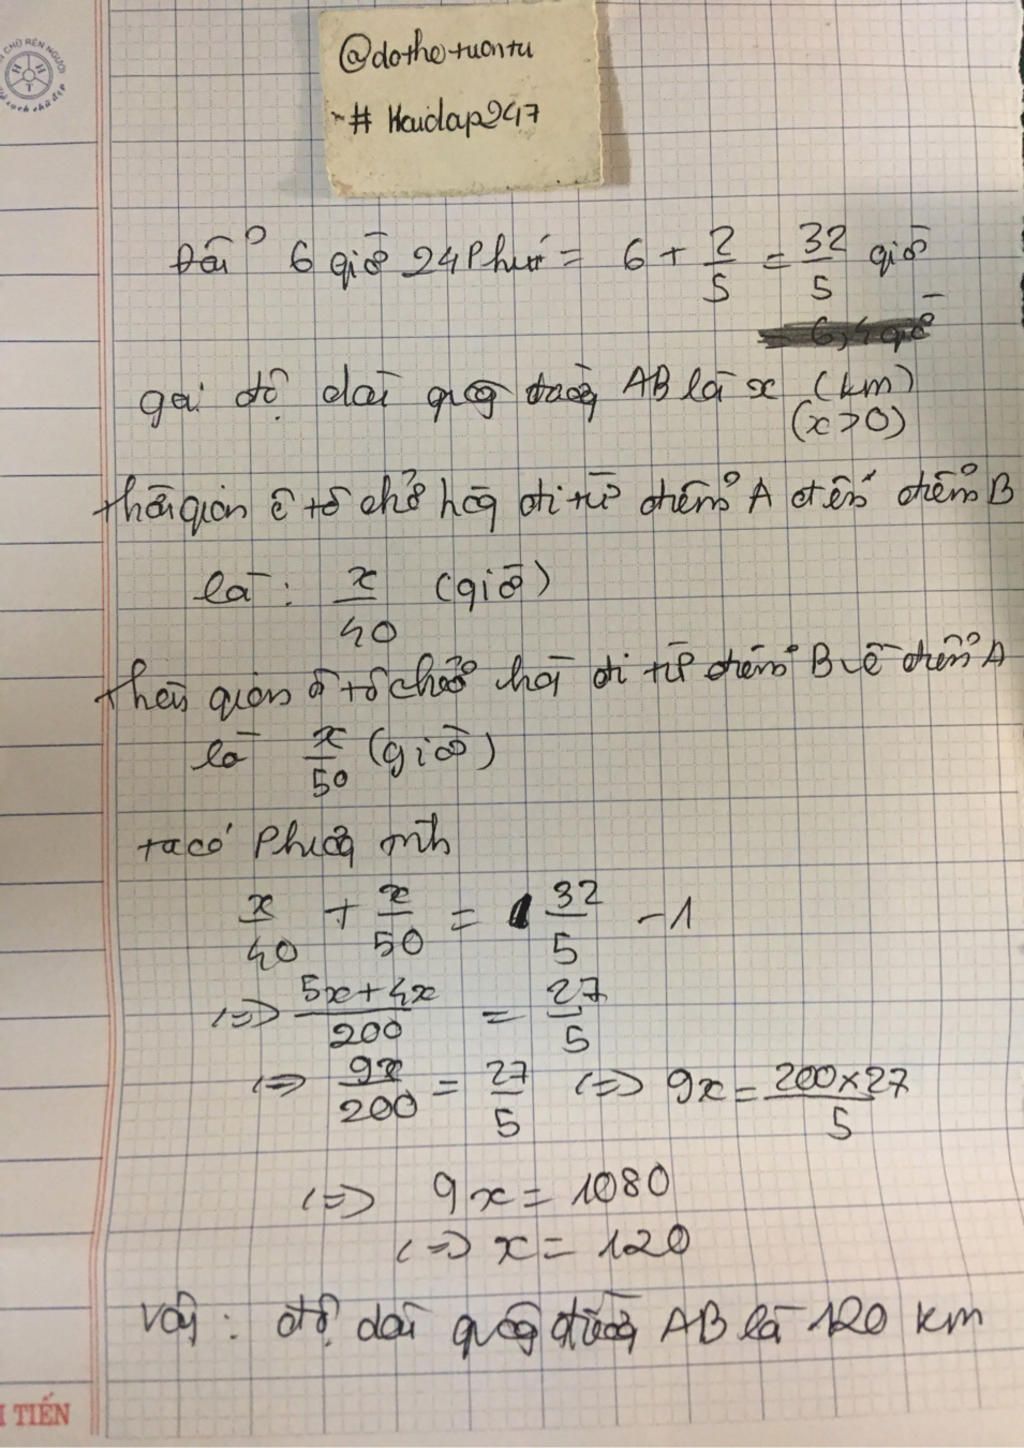 @dothetuantu
# Hoidap247
Đổi 6 giờ 24 Phút = 6 + 2/5 = 32/5 giờ
gọi độ dài quãng đường AB là x (km)
(x>0)
thời gian ô tô chở hàng đi từ điểm A đến điểm B
là: x/40 (giờ)
thời gian ô tô chở hàng đi từ điểm B về điểm A
là x/50 (giờ)
ta có Phương trình
x/40 + x/50 = 32/5 - 1
<=> (5x+4x)/200 = 27/5
<=> 9x/200 = 27/5 <=> 9x = (200x27)/5
<=> 9x = 1080
<=> x = 120
Vậy: độ dài quãng đường AB là 120 km
TIẾN